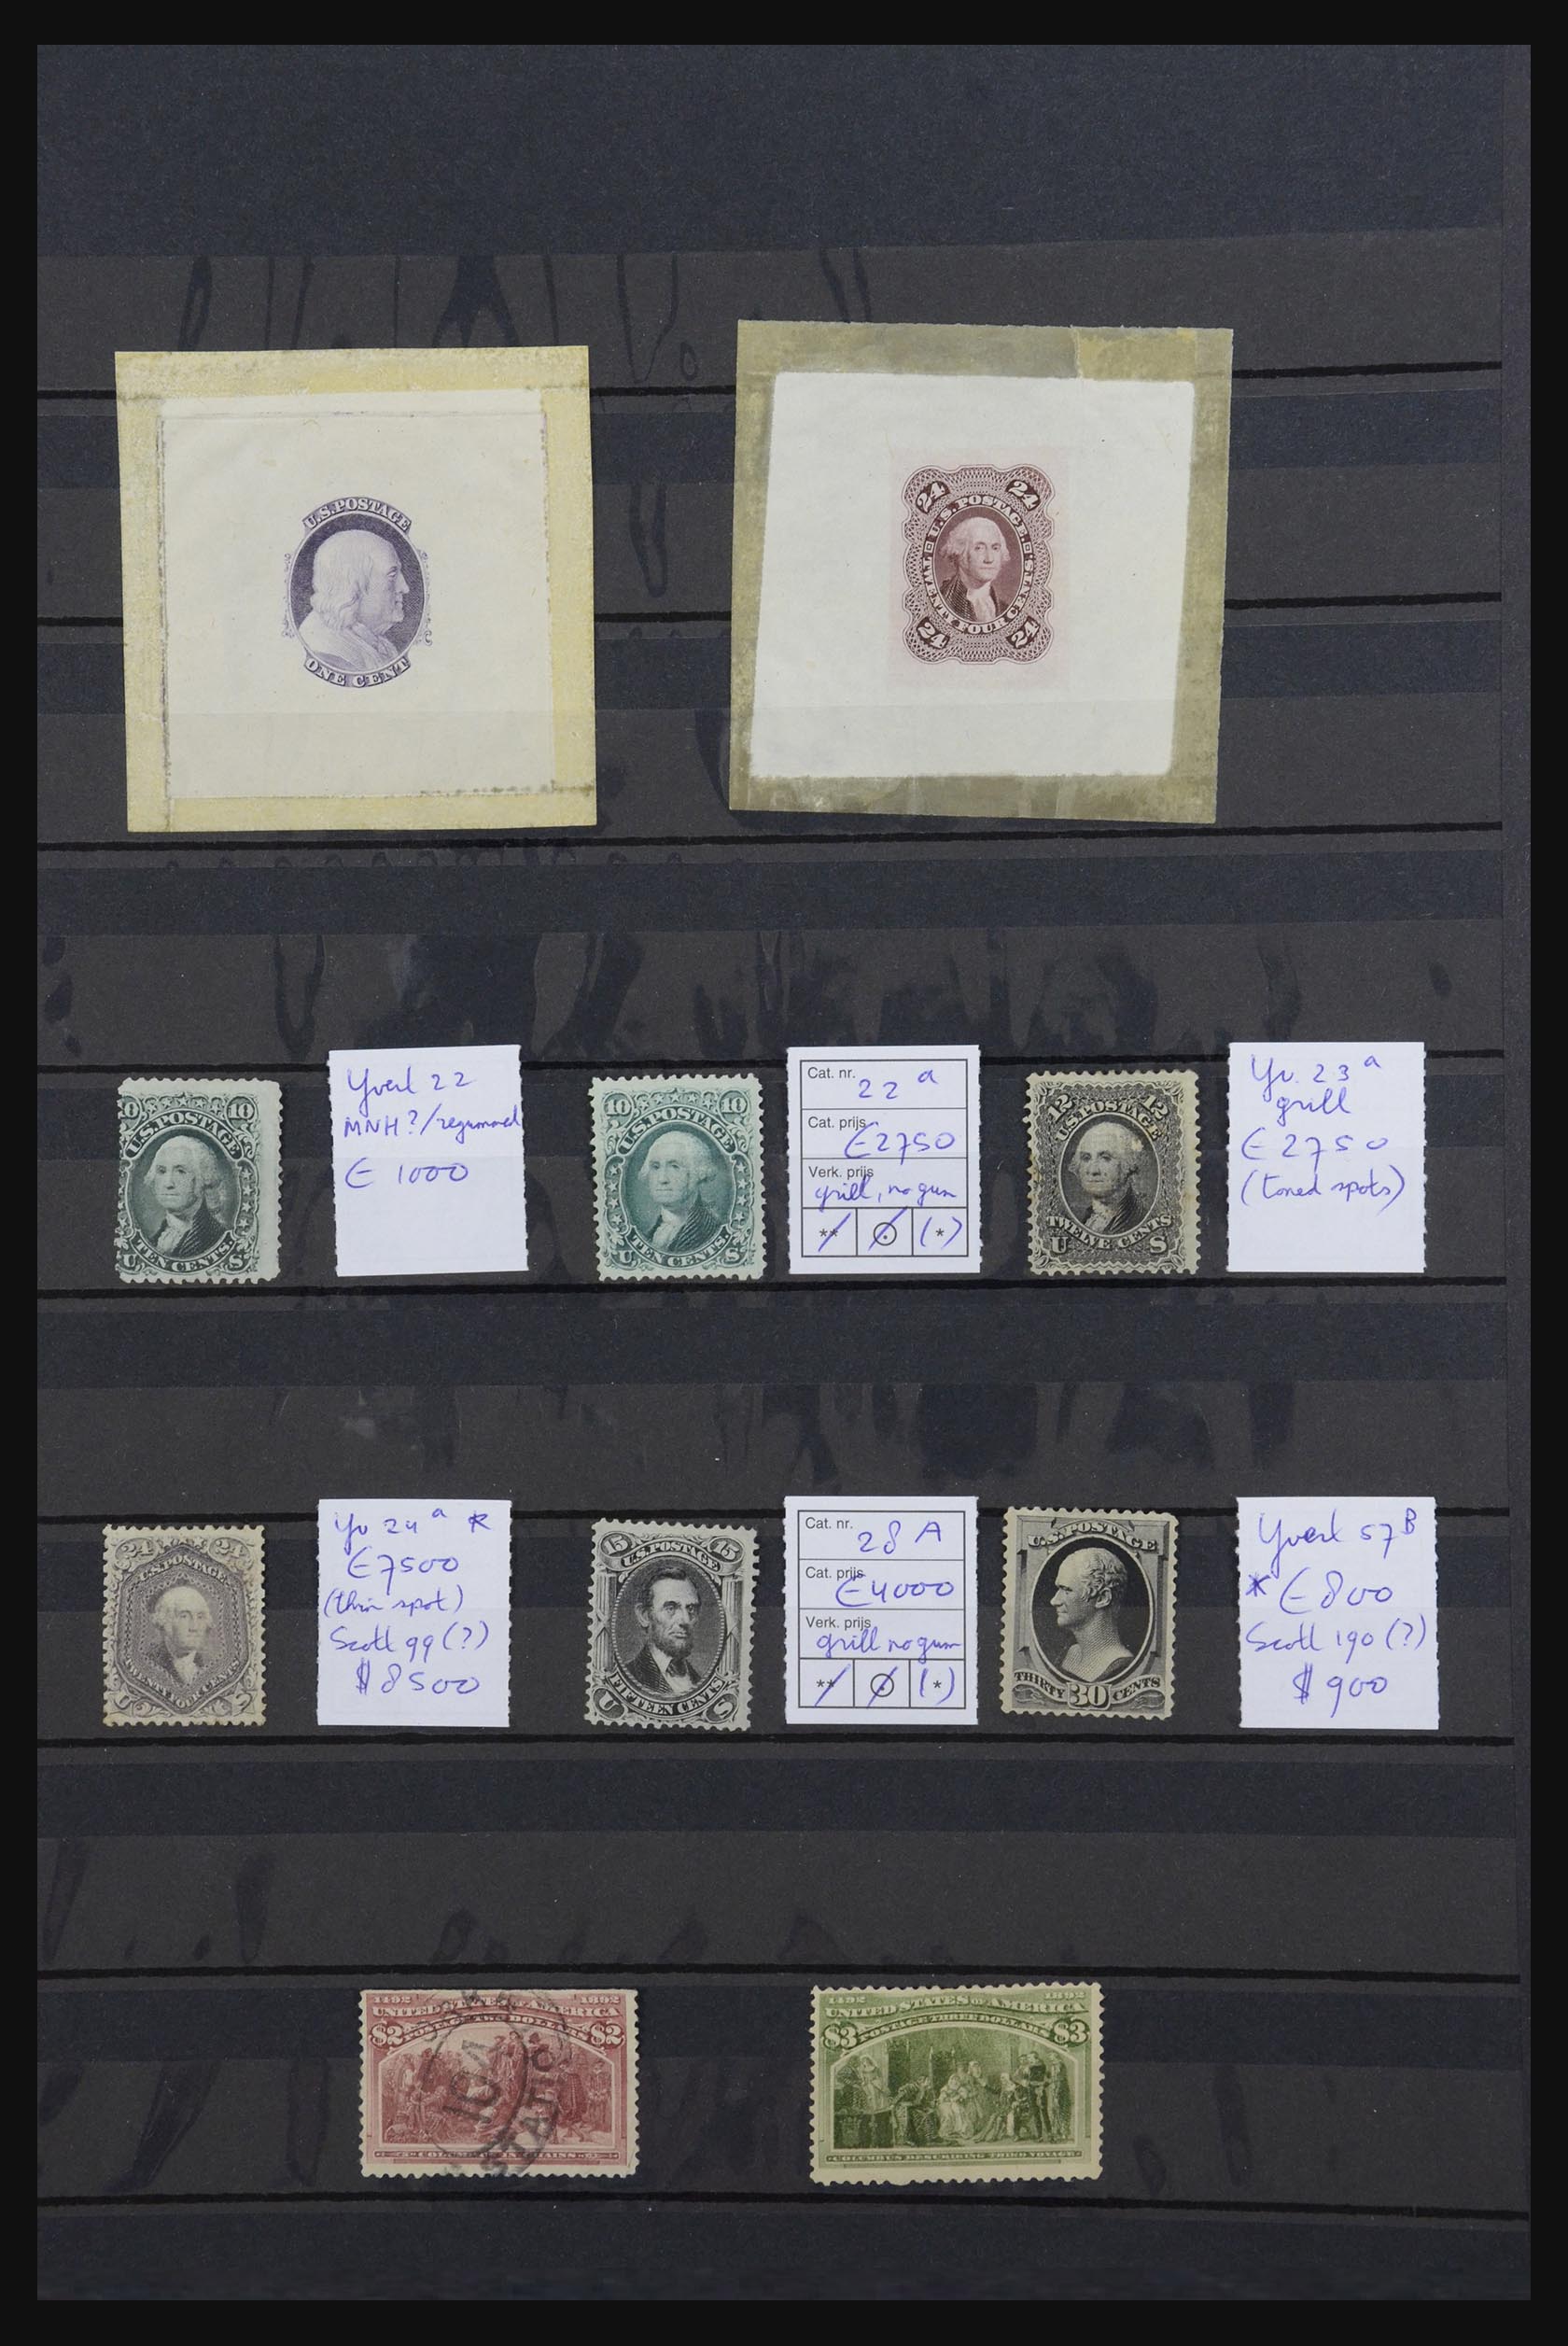 U.S. POSTAGE
ONE CENT
24 24
U.S. POSTAGE.
TWENTY FOUR CENTS.
24 24
10 10
U.S. POSTAGE
TEN CENTS.
U S
Yvert 22
MNH?/regummed
€ 1000
10 10
U.S. POSTAGE
TEN CENTS.
U S
Cat. nr. 22 a
Cat. prijs €2750
Verk. prijs
grill, no gum
** (*)
12 12
U.S. POSTAGE
TWELVE CENTS
U S
Yv. 23 a
grill
€ 2750
(toned spots)
24 24
U.S. POSTAGE
TWENTY FOUR CENTS
U S
Yv 24 a *
€7500
(thin spot)
Scott 99 (?)
$ 8500
15 15
U.S. POSTAGE
FIFTEEN CENTS
U S
Cat. nr. 28 A
Cat. prijs €4000
Verk. prijs
grill no gum
** (*)
U.S. POSTAGE
THIRTY 30 CENTS
Yvert 57 B
* €800
Scott 190 (?)
$ 900
1492 1892
UNITED STATES OF AMERICA
$2 POSTAGE TWO DOLLARS $2
COLUMBUS IN CHAINS
STATIO
1492 1892
UNITED STATES OF AMERICA
$3 POSTAGE THREE DOLLARS $3
COLUMBUS DESCRIBING THIRD VOYAGE